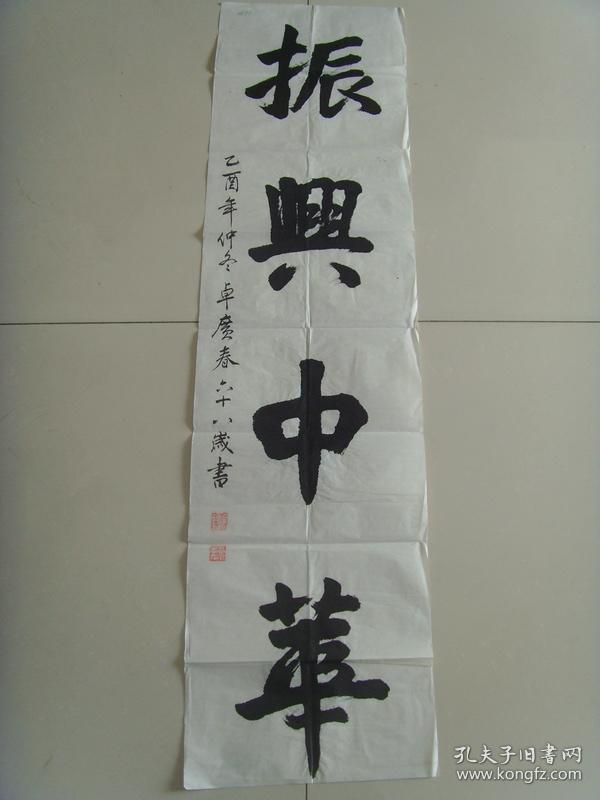 振興中華
乙酉年仲冬卓廣春六十八歲書
孔夫子旧书网
www.kongfz.com